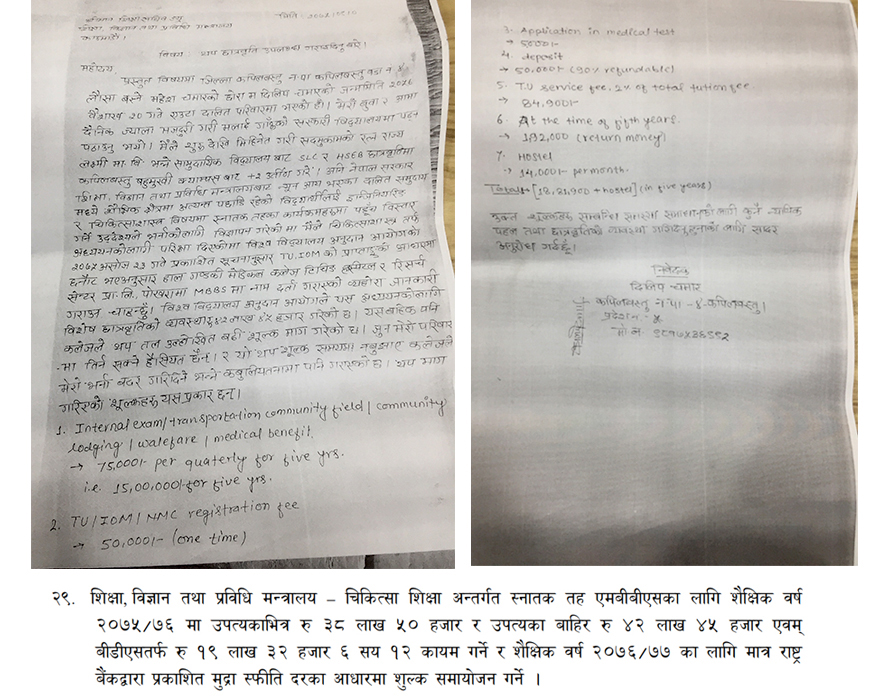 श्रीमान् शिक्षा सचिव ज्यू
शिक्षा, विज्ञान तथा प्रविधि मन्त्रालय
काठमाडौं।
मिति:
विषय: थप छात्रवृत्ति उपलब्ध गराईदिनु बारे।
महोदय
प्रस्तुत विषयमा जिल्ला कपिलवस्तु न.पा कपिलवस्तु वडा नं ४
बस्ने महेश चमारको छोरा म दिलिप चमारको जन्ममिति
वैशाख २० गते एउटा दलित परिवारमा भएको हो। मेरो बुवा र आमा
दैनिक ज्याला मजदुरी गरी मलाई गाउँको सरकारी विद्यालयमा पढ्न
पठाउनु भयो। मैले शुरु देखि मिहिनेत गरी सदमुकामको रत्न राज्य
लक्ष्मी मा वि भन्ने सामुदायिक विद्यालय बाट SLC र HSEB छात्रवृत्तिमा
कपिलवस्तु बहुमुखी क्याम्पस बाट +2 उत्तीर्ण गरें। अनि नेपाल सरकार
शिक्षा, विज्ञान तथा प्रविधि मन्त्रालयबाट न्यून आय भएका दलित समुदाय
मध्ये शैक्षिक क्षेत्रमा अत्यन्त पछाडि रहेको विद्यार्थीलाई इन्जिनियरिङ
र चिकित्साशास्त्र विषयमा स्नातक तहका कार्यक्रमहरुमा पहुँच विस्तार
गर्ने उद्देश्यले भर्नाकोलागी विज्ञापन गरेको मा मैले चिकित्साशास्त्र तर्फ
अध्ययनकोलागी परिक्षा दिएकोमा विश्व विद्यालय अनुदान आयोगको
२०७५ असोज २३ गते प्रकाशित सूचनानुसार TU, IOM को प्राप्ताङ्कको आधारमा
छनौट भएअनुसार हाल गण्डकी मेडिकल कलेज टिचिङ हस्पिटल र रिसर्च
सेन्टर प्रा.लि., पोखरामा MBBS मा नाम दर्ता गराएको व्यहोरा जानकारी
गराउन चाहन्छु। विश्व विद्यालय अनुदान आयोगले यस अध्ययनकोलागि
विशेष छात्रवृत्तिको व्यवस्था रु ४२ लाख ४५ हजार गरेको छ। यसबाहेक पनि
कलेजले थप तल उल्लेखित बढी शूल्क माग गरेको छ। जुन मेरो परिवार
मा तिर्न सक्ने हैसियत छैन। र यो थप शूल्क समयमा नबुझाए कलेजले
मेरो भर्ना बदर गरिदिने भन्ने कबुलियतनामा पनि गराएको छ। थप माग
गरिएको शूल्कहरु यस प्रकार छन्।
1. Internal exam/transportation community field / community
lodging / walefare / medical benefit
→ 75,000/- per quaterly for five yrs.
i.e. 15,00,000/- for five yrs.
2. TU/IOM/NMC registration fee
→ 50,000/- (one time)
3. Application in medical test
→ 5000/-
4. deposit
→ 50,000/- (90% refundable)
5. T.U service fee, 2% of total tution fee.
→ 84,900/-
6. At the time of fifth years.
→ 1,32,000 (return money)
7. Hostel
→ 14,000/- per month.
Total → [18,21,900 + hostel] (in five years)
उक्त शूल्कहरु सम्बन्धि समस्या समाधानको लागी कुनै
पहल तथा छात्रवृत्तिको व्यवस्था गरिदिनुहुनाको लागी सादर
अनुरोध गर्दछु।
निवेदक
दिलिप चमार
कपिलवस्तु न.पा-४-कपिलवस्तु।
प्रदेश नं - ५
मो नं
२९. शिक्षा, विज्ञान तथा प्रविधि मन्त्रालय – चिकित्सा शिक्षा अन्तर्गत स्नातक तह एमबीबीएसका लागि शैक्षिक वर्ष
२०७५/७६ मा उपत्यकाभित्र रु ३८ लाख ५० हजार र उपत्यका बाहिर रु ४२ लाख ४५ हजार एवम्
बीडीएसतर्फ रु १९ लाख ३२ हजार ६ सय १२ कायम गर्ने र शैक्षिक वर्ष २०७६/७७ का लागि मात्र राष्ट्र
बैंकद्वारा प्रकाशित मुद्रा स्फीति दरका आधारमा शुल्क समायोजन गर्ने ।